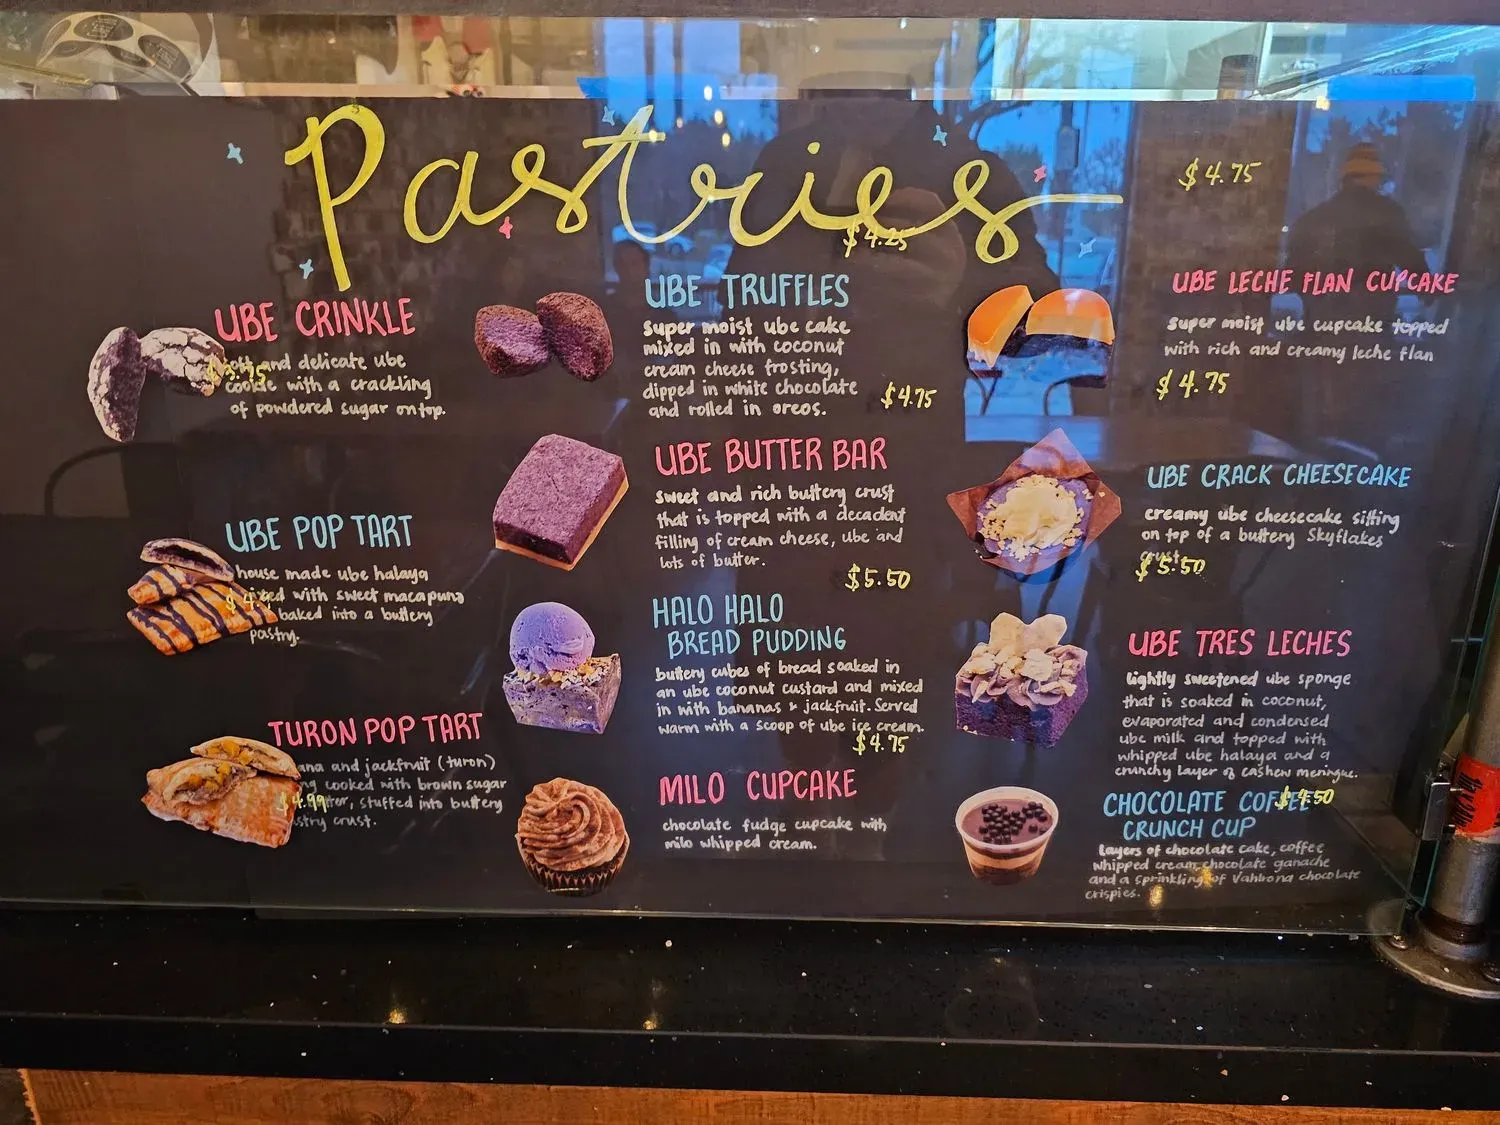 Pastries
UBE CRINKLE
and delicate ube
cookie with a crackling
of powdered sugar on top.
UBE POP TART
house made ube halaya
with sweet macapuno
baked into a buttery
pastry.
TURON POP TART
and jackfruit (turon)
cooked with brown sugar
$4.99
, stuffed into buttery
crust.
$4.25
UBE TRUFFLES
super moist ube cake
mixed in with coconut
cream cheese frosting,
dipped in white chocolate
and rolled in oreos.
$4.75
UBE BUTTER BAR
sweet and rich buttery crust
that is topped with a decadent
filling of cream cheese, ube and
lots of butter.
$5.50
HALO HALO
BREAD PUDDING
buttery cubes of bread soaked in
an ube coconut custard and mixed
in with bananas & jackfruit. Served
warm with a scoop of ube ice cream.
$4.75
MILO CUPCAKE
chocolate fudge cupcake with
milo whipped cream.
$4.75
UBE LECHE FLAN CUPCAKE
super moist ube cupcake topped
with rich and creamy leche flan
$4.75
UBE CRACK CHEESECAKE
creamy ube cheesecake sitting
on top of a buttery Skyflakes
crust
$5.50
UBE TRES LECHES
lightly sweetened ube sponge
that is soaked in coconut,
evaporated and condensed
ube milk and topped with
whipped ube halaya and a
crunchy layer of cashew meringue.
CHOCOLATE COFFEE
CRUNCH CUP
layers of chocolate cake, coffee
whipped cream, chocolate ganache
and a sprinkling of Vahlrona chocolate
crispies.